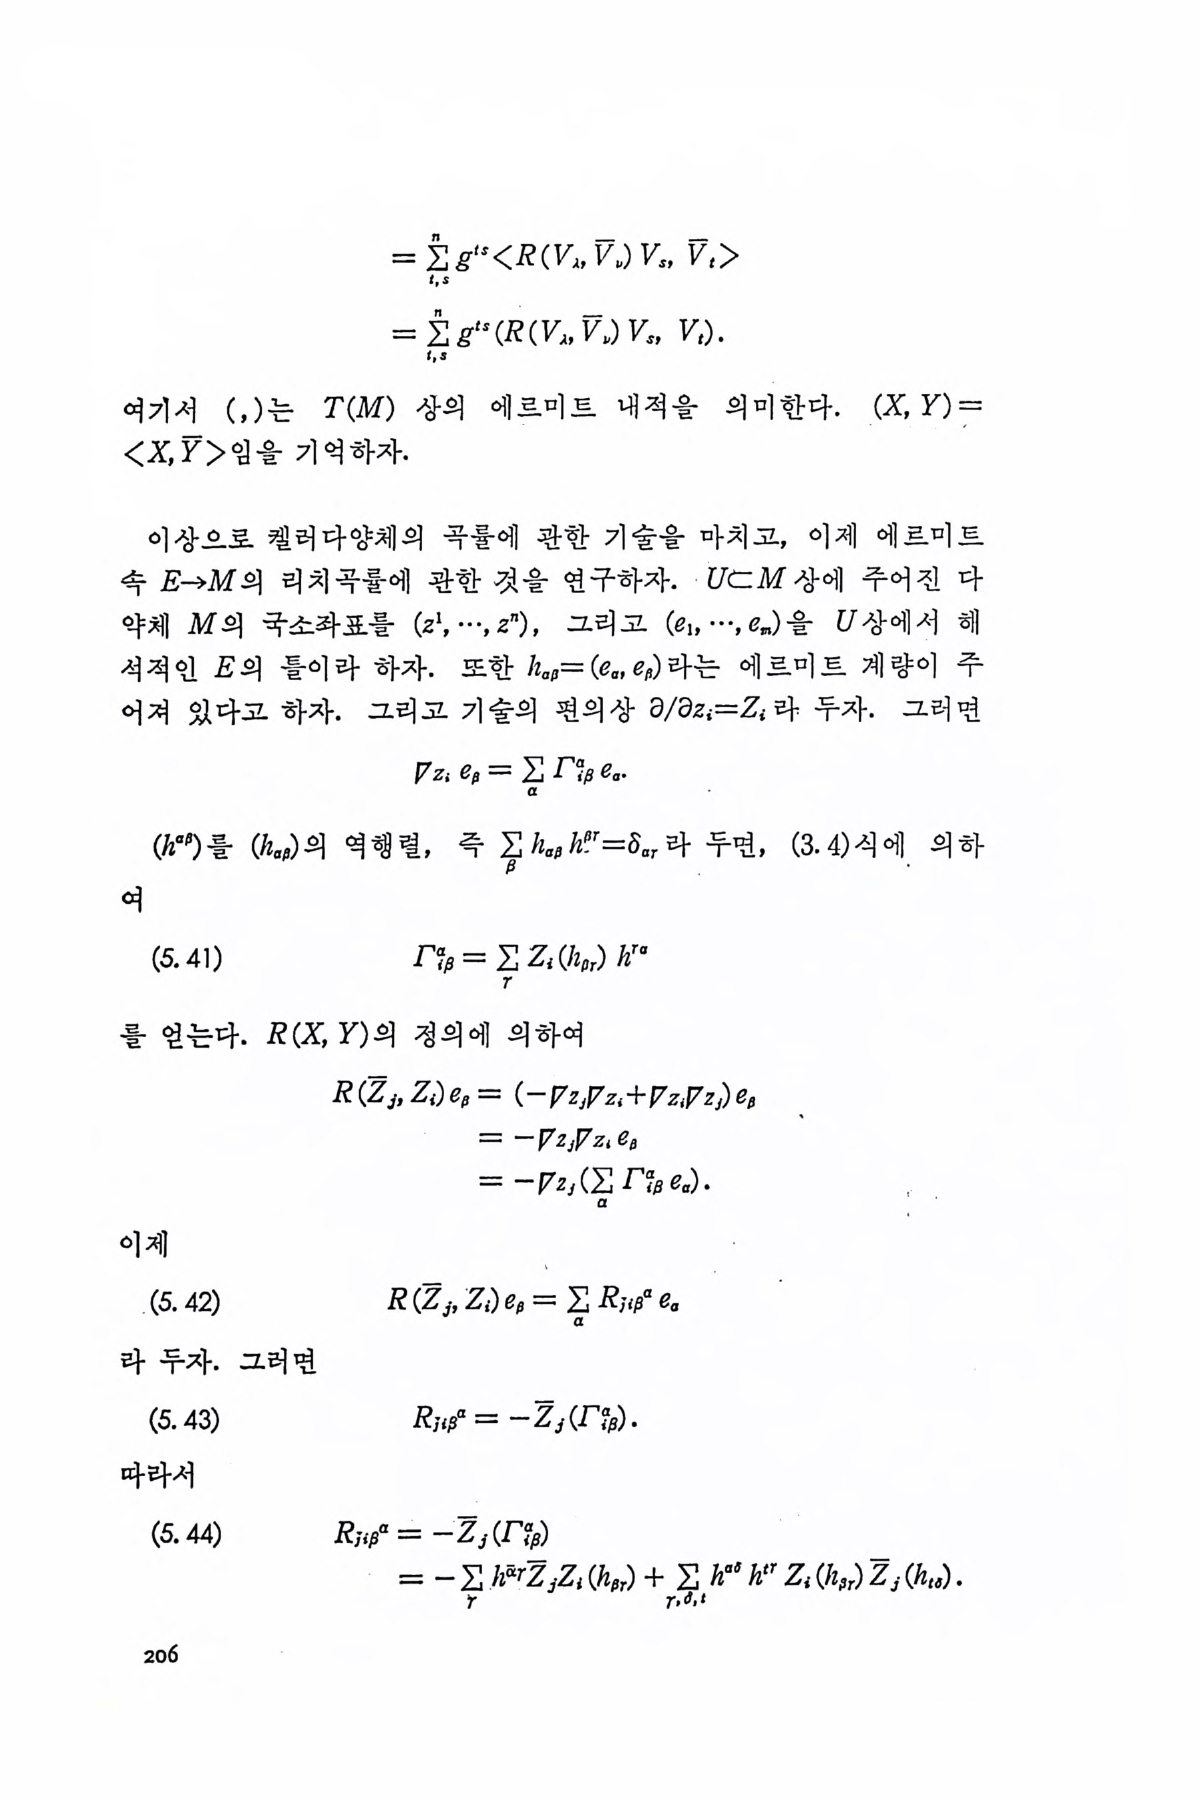 = ∑_{t,s}^{n} g^{ts}<R(V_λ, V̅_ν) V_s, V̅_t>
= ∑_{t,s}^{n} g^{ts}(R(V_λ, V̅_ν) V_s, V_t).
여기서 (,)는 T(M) 상의 에르미트 내적을 의미한다. (X, Y)=
<X, Y̅>임을 기억하자.
이상으로 켈러다양체의 곡률에 관한 기술을 마치고, 이제 에르미트
속 E→M의 리치곡률에 관한 것을 연구하자. U⊂M 상에 주어진 다
양체 M의 국소좌표를 (z¹, ⋯, zⁿ), 그리고 (e₁, ⋯, e_m)을 U상에서 해
석적인 E의 틀이라 하자. 또한 h_{αβ}=(e_α, e_β)라는 에르미트 계량이 주
어져 있다고 하자. 그리고 기술의 편의상 ∂/∂z_i=Z_i라 두자. 그러면
∇_{Z_i} e_β = ∑_α Γ^α_{iβ} e_α.
(h^{αβ})를 (h_{αβ})의 역행렬, 즉 ∑_β h_{αβ} h^{βγ}=δ_{αγ}라 두면, (3.4)식에 의하
여
(5.41) Γ^α_{iβ} = ∑_γ Z_i(h_{βγ}) h^{γα}
를 얻는다. R(X, Y)의 정의에 의하여
R(Z̅_j, Z_i)e_β = (−∇_{Z_j}∇_{Z_i}+∇_{Z_i}∇_{Z_j})e_β
= −∇_{Z_j}∇_{Z_i} e_β
= −∇_{Z_j}(∑_α Γ^α_{iβ} e_α).
이제
(5.42) R(Z̅_j, Z_i)e_β = ∑_α R_{j̅iβ}^α e_α
라 두자. 그러면
(5.43) R_{j̅iβ}^α = −Z̅_j(Γ^α_{iβ}).
따라서
(5.44) R_{j̅iβ}^α = −Z̅_j(Γ^α_{iβ})
= −∑_γ h^{α̅γ}Z̅_jZ_i(h_{βγ}) + ∑_{γ,δ,t} h^{αδ} h^{tγ} Z_i(h_{βγ}) Z̅_j(h_{tδ}).
206